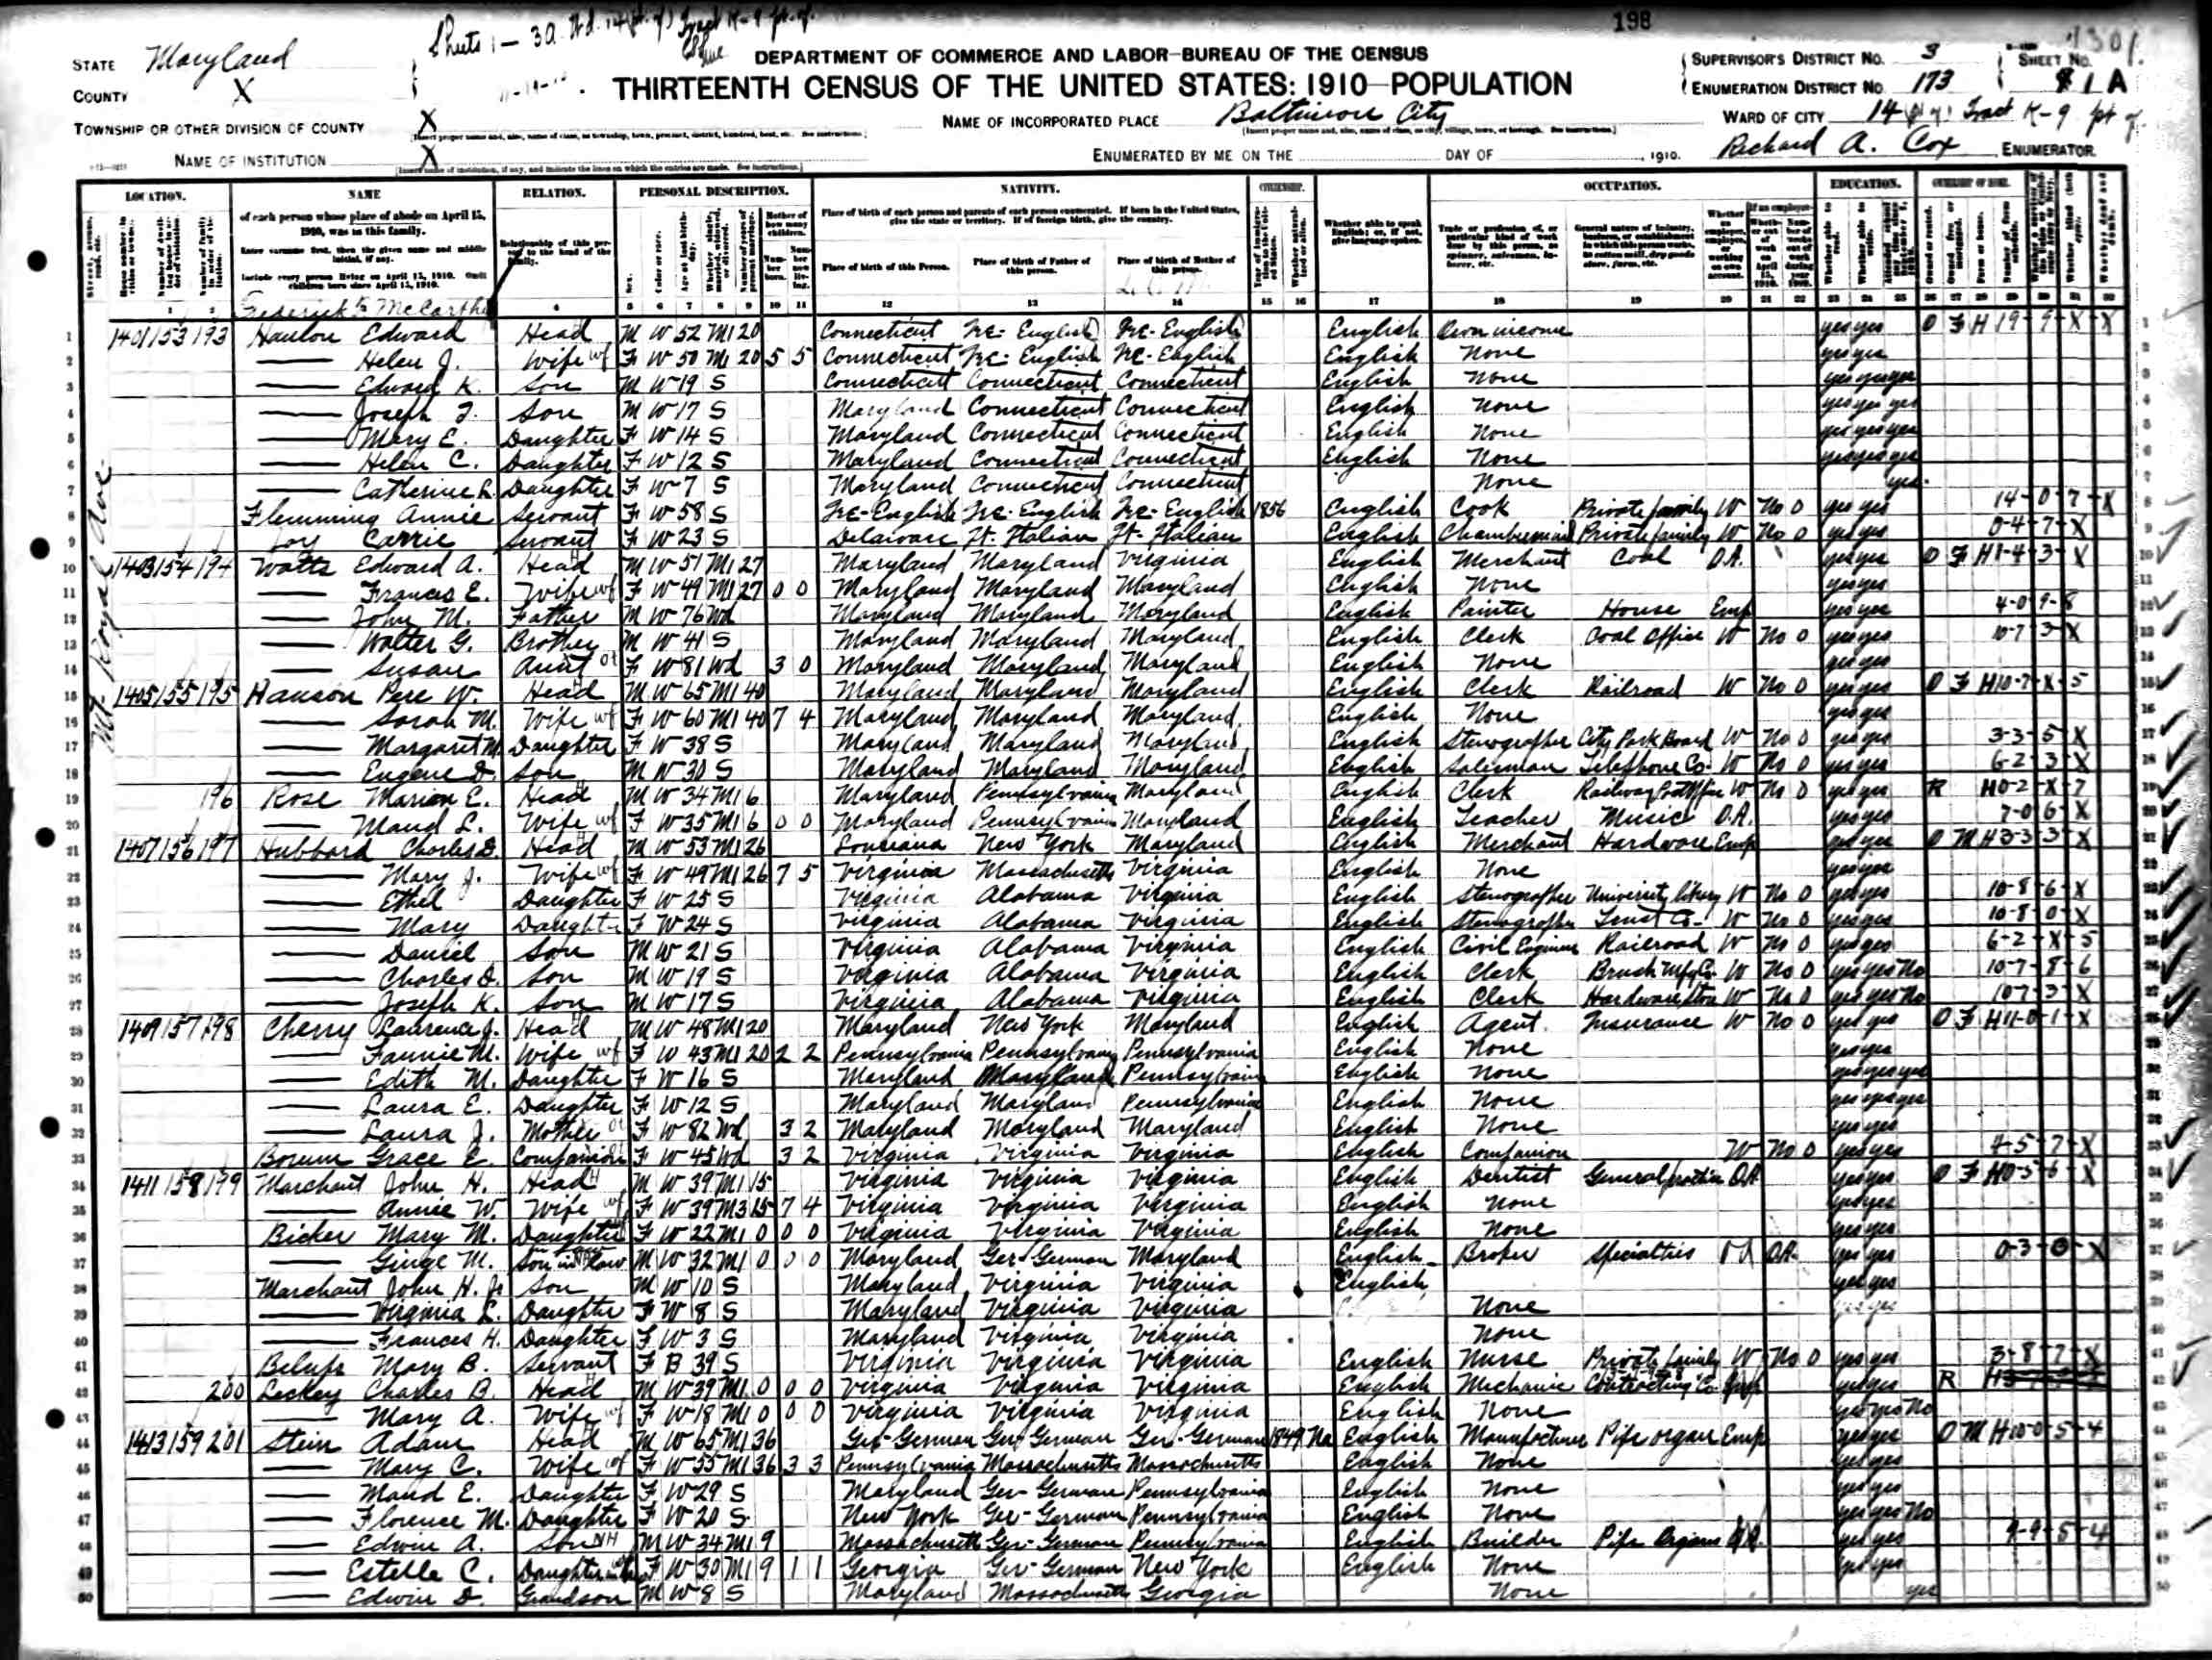 198
Sheets 1 - 3a Wd. 14 (pt. of) Tract K-9 pt. of.
STATE Maryland
DEPARTMENT OF COMMERCE AND LABOR-BUREAU OF THE CENSUS
SUPERVISOR'S DISTRICT NO. 3
SHEET NO.
COUNTY X
THIRTEENTH CENSUS OF THE UNITED STATES: 1910-POPULATION
ENUMERATION DISTRICT NO. 173
1 A
TOWNSHIP OR OTHER DIVISION OF COUNTY X
NAME OF INCORPORATED PLACE Baltimore City
WARD OF CITY 14 Tract K-9 pt of
NAME OF INSTITUTION X
ENUMERATED BY ME ON THE DAY OF , 1910.
Richard A. Cox , ENUMERATOR
LOCATION. NAME RELATION. PERSONAL DESCRIPTION. NATIVITY. CITIZENSHIP. OCCUPATION. EDUCATION. OWNERSHIP OF HOME.
of each person whose place of abode on April 15, 1910, was in this family.
Enter surname first, then the given name and middle initial, if any.
Include every person living on April 15, 1910. Omit children born since April 15, 1910.
Relationship of this person to the head of the family.
Place of birth of each person and parents of each person enumerated. If born in the United States, give the state or territory. If of foreign birth, give the country.
Place of birth of this Person. Place of birth of Father of this person. Place of birth of Mother of this person.
Whether able to speak English; or, if not, give language spoken.
Mt. Royal Ave.
1 1401 153 193 Hanlon Edward Head M W 52 M1 20 Connecticut Ire-English Ire-English English Own income yes yes O F H 19-9-X-X
2 Helen J. Wife F W 50 M1 20 5 5 Connecticut Ire-English Ire-English English None yes yes
3 Edward K. Son M W 19 S Connecticut Connecticut Connecticut English None yes yes yes
4 Joseph F. Son M W 17 S Maryland Connecticut Connecticut English None yes yes yes
5 Mary E. Daughter F W 14 S Maryland Connecticut Connecticut English None yes yes yes
6 Helen C. Daughter F W 12 S Maryland Connecticut Connecticut English None yes yes yes
7 Catherine L. Daughter F W 7 S Maryland Connecticut Connecticut None yes
8 Flemming Annie Servant F W 58 S Ire-English Ire-English Ire-English 1856 English Cook Private family W No 0 yes yes 14-0-7-X
9 Joy Carrie Servant F W 23 S Delaware It-Italian It-Italian English Chambermaid Private family W No 0 yes yes 0-4-7-X
10 1403 154 194 Watts Edward A. Head M W 51 M1 27 Maryland Maryland Virginia English Merchant Coal O.A. yes yes O F H 1-4-3-X
11 Frances E. Wife F W 49 M1 27 0 0 Maryland Maryland Maryland English None yes yes
12 John M. Father M W 76 Wd Maryland Maryland Maryland English Painter House Emp yes yes 4-0-9-8
13 Walter G. Brother M W 41 S Maryland Maryland Maryland English Clerk Coal Office W No 0 yes yes 10-7-3-X
14 Susan Aunt F W 81 Wd 3 0 Maryland Maryland Maryland English None yes yes
15 1405 155 195 Hanson Pere W. Head M W 65 M1 40 Maryland Maryland Maryland English Clerk Railroad W No 0 yes yes O F H 10-7-X-5
16 Sarah M. Wife F W 60 M1 40 7 4 Maryland Maryland Maryland English None yes yes
17 Margaret M. Daughter F W 38 S Maryland Maryland Maryland English Stenographer City Park Board W No 0 yes yes 3-3-5-X
18 Eugene D. Son M W 30 S Maryland Maryland Maryland English Salesman Telephone Co. W No 0 yes yes 6-2-3-X
19 196 Rose Marion E. Head M W 34 M1 6 Maryland Pennsylvania Maryland English Clerk Railway Post Office W No 0 yes yes R H 0-2-X-7
20 Maud L. Wife F W 35 M1 6 0 0 Maryland Pennsylvania Maryland English Teacher Music O.A. yes yes 7-0-6-X
21 1407 156 197 Hubbard Charles D. Head M W 53 M1 26 Louisiana New York Maryland English Merchant Hardware Emp yes yes O M H 3-3-3-X
22 Mary J. Wife F W 49 M1 26 7 5 Virginia Massachusetts Virginia English None yes yes
23 Ethel Daughter F W 25 S Virginia Alabama Virginia English Stenographer University library W No 0 yes yes 10-8-6-X
24 Mary Daughter F W 24 S Virginia Alabama Virginia English Stenographer Trust Co. W No 0 yes yes 10-8-0-X
25 Daniel Son M W 21 S Virginia Alabama Virginia English Civil Engineer Railroad W No 0 yes yes 6-2-X-5
26 Charles D. Son M W 19 S Virginia Alabama Virginia English Clerk Brush Mfg Co. W No 0 yes yes No 10-7-8-6
27 Joseph K. Son M W 17 S Virginia Alabama Virginia English Clerk Hardware Store W No 0 yes yes No 10-7-3-X
28 1409 157 198 Cherry Laurence J. Head M W 48 M1 20 Maryland New York Maryland English Agent Insurance W No 0 yes yes O F H 11-0-1-X
29 Fannie M. Wife F W 43 M1 20 2 2 Pennsylvania Pennsylvania Pennsylvania English None yes yes
30 Edith M. Daughter F W 16 S Maryland Maryland Pennsylvania English None yes yes yes
31 Laura E. Daughter F W 12 S Maryland Maryland Pennsylvania English None yes yes yes
32 Laura J. Mother F W 82 Wd 3 2 Maryland Maryland Maryland English None yes yes
33 Borum Grace E. Companion F W 45 Wd 3 2 Virginia Virginia Virginia English Companion W No 0 yes yes 4-5-7-X
34 1411 158 199 Marchant John H. Head M W 39 M1 15 Virginia Virginia Virginia English Dentist General practice O.A. yes yes O F H 0-5-6-X
35 Annie W. Wife F W 39 M3 15 7 4 Virginia Virginia Virginia English None yes yes
36 Bicker Mary M. Daughter F W 22 M1 0 0 0 Virginia Virginia Virginia English None yes yes
37 M. Son in law M W 32 M1 0 0 0 Maryland Ger-German Maryland English Broker Specialties O.A. yes yes 0-3-0-X
38 Marchant John H. Jr Son M W 10 S Maryland Virginia Virginia English yes yes
39 Virginia L. Daughter F W 8 S Maryland Virginia Virginia None yes yes
40 Frances H. Daughter F W 3 S Maryland Virginia Virginia None
41 Belups Mary B. Servant F B 39 S Virginia Virginia Virginia English Nurse Private family W No 0 yes yes 3-8-7-X
42 200 Lackey Charles B. Head M W 39 M1 0 0 0 Virginia Virginia Virginia English Mechanic Contracting Co. Emp yes yes R H
43 Mary A. Wife F W 18 M1 0 0 0 Virginia Virginia Virginia English None yes yes No
44 1413 159 201 Stein Adam Head M W 65 M1 36 Ger-German Ger-German Ger-German 1849 Na English Manufacturer Pipe organ Emp yes yes O M H 10-0-5-4
45 Mary C. Wife F W 55 M1 36 3 3 Pennsylvania Massachusetts Massachusetts English None yes yes
46 Maud E. Daughter F W 29 S Maryland Ger-German Pennsylvania English None yes yes
47 Florence M. Daughter F W 20 S New York Ger-German Pennsylvania English None yes yes No
48 Edwin A. Son M W 34 M1 9 Massachusetts Ger-German Pennsylvania English Builder Pipe Organs yes yes 9-9-5-4
49 Estelle C. Daughter in law F W 30 M1 9 1 1 Georgia Ger-German New York English None yes yes
50 Edwin D. Grandson M W 8 S Maryland Massachusetts Georgia None yes